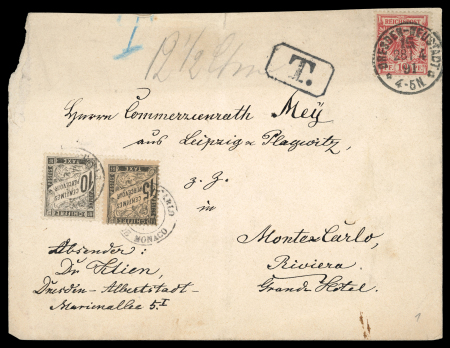 12½ Ctm
T.
REICHSPOST
DRESDEN-NEUSTADT
4-5N
Herrn Commerzienrath Mey
aus Leipzig-Plagwitz,
z. Z.
in
Monte-Carlo,
Riviera.
Grand Hotel.
10 CENTIMES À PERCEVOIR
CHIFFRE TAXE
15 CENTIMES À PERCEVOIR
CHIFFRE TAXE
MONACO
Absender:
Dr
Dresden-Albertstadt-
Marienallee 5.I
1